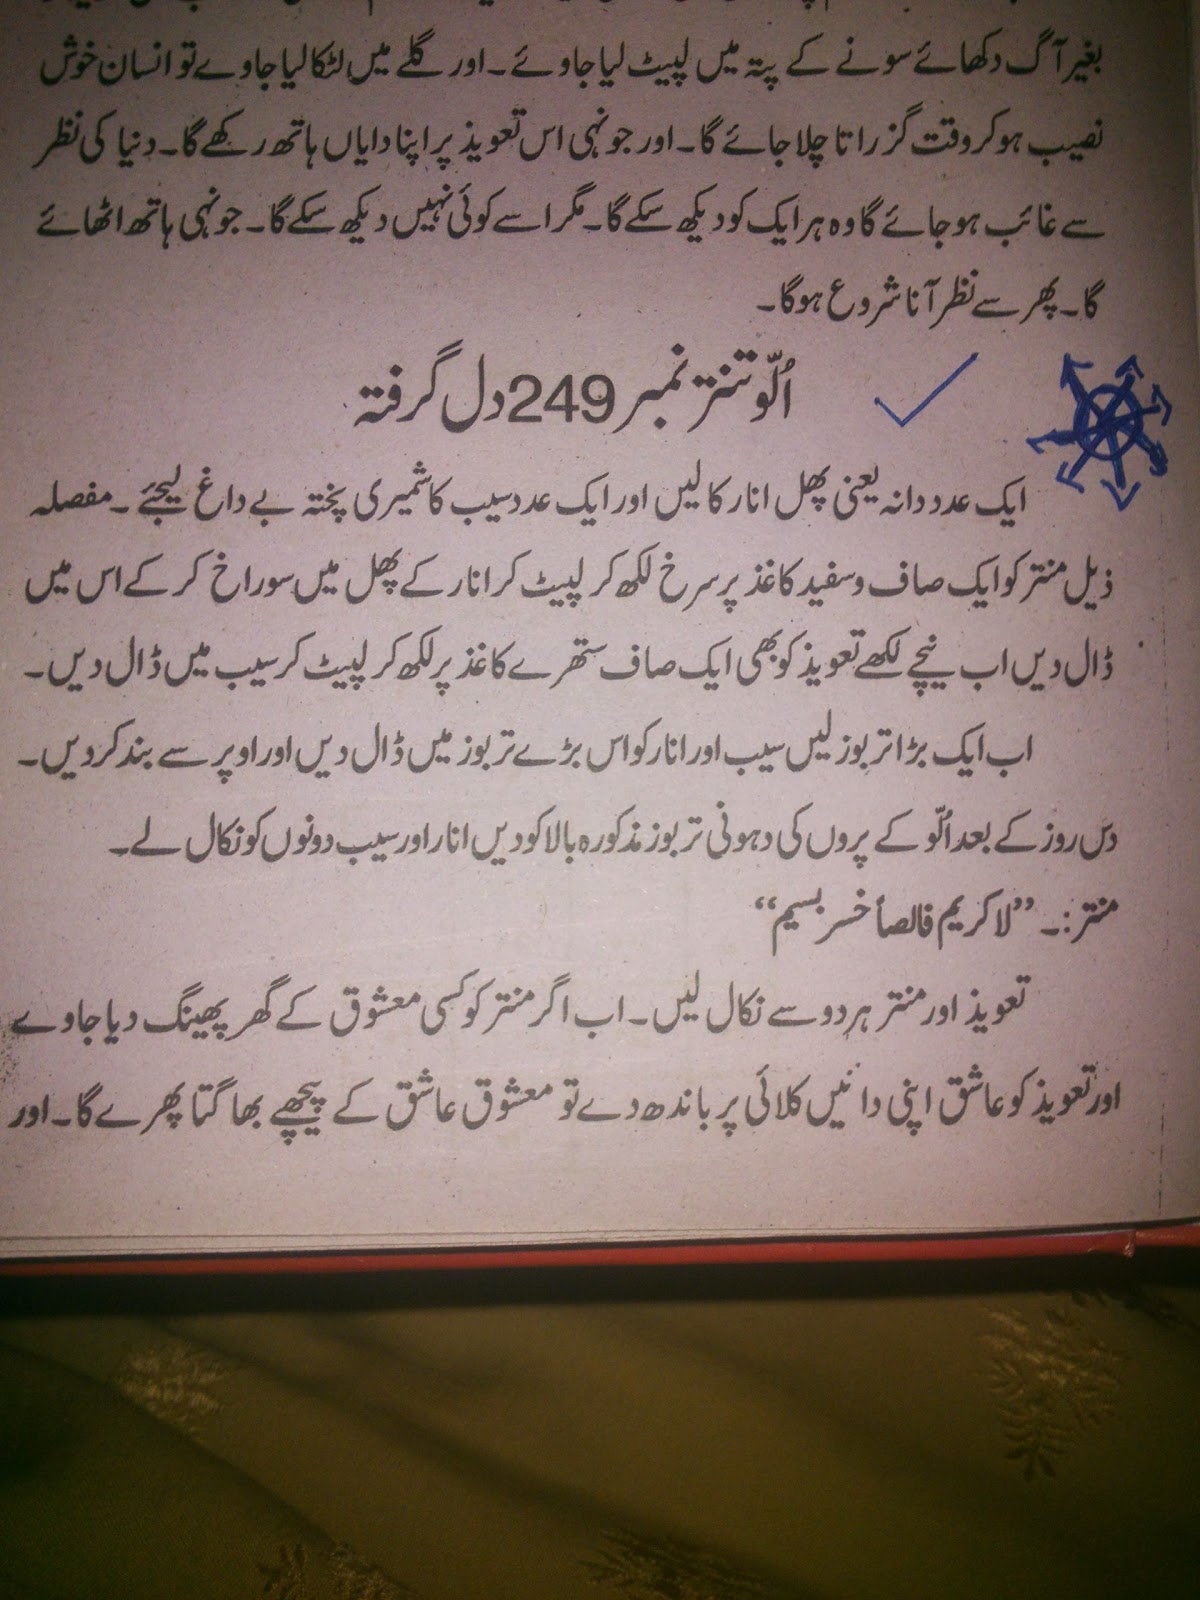 بغیر آگ دکھائے سونے کے پتہ میں لپیٹ لیا جاوئے۔ اور گلے میں لٹکا لیا جاوے تو انسان خوش
نصیب ہو کر وقت گزراتا چلا جائے گا۔ اور جونہی اس تعویذ پر اپنا دایاں ہاتھ رکھے گا۔ دنیا کی نظر
سے غائب ہو جائے گا وہ ہر ایک کو دیکھ سکے گا۔ مگر اسے کوئی نہیں دیکھ سکے گا۔ جونہی ہاتھ اٹھائے
گا۔ پھر سے نظر آنا شروع ہوگا۔
اُلّو تنتر نمبر 249 دل گرفتہ
ایک عدد دانہ یعنی پھل انار کا لیں اور ایک عدد سیب کاشمیری پختہ بے داغ لیجئے ۔ مفصلہ
ذیل منتر کو ایک صاف و سفید کاغذ پر سرخ لکھ کر لپیٹ کر انار کے پھل میں سوراخ کر کے اس میں
ڈال دیں اب نیچے لکھے تعویذ کو بھی ایک صاف ستھرے کاغذ پر لکھ کر لپیٹ کر سیب میں ڈال دیں۔
اب ایک بڑا تربوز لیں سیب اور انار کو اس بڑے تربوز میں ڈال دیں اور اوپر سے بند کر دیں۔
دس روز کے بعد الّو کے پروں کی دہونی تربوز مذکورہ بالا کو دیں انار اور سیب دونوں کو نکال لے۔
منتر:۔ ”لا کریم فالصاً خسر بسیم“
تعویذ اور منتر ہر دو سے نکال لیں۔ اب اگر منتر کو کسی معشوق کے گھر پھینگ دیا جاوے
اور تعویذ کو عاشق اپنی دائیں کلائی پر باندھ دے تو معشوق عاشق کے پیچھے بھاگتا پھرے گا۔ اور